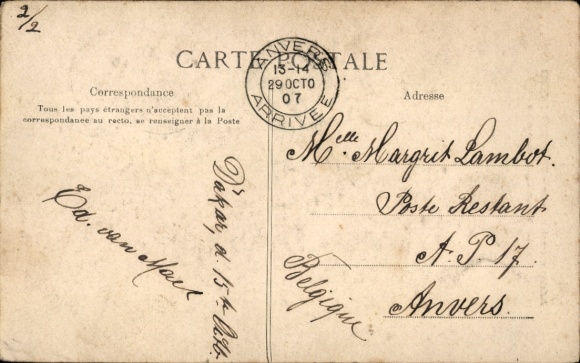 2/2
CARTE POSTALE
ANVERS
13-14
29 OCTO
07
ARRIVEE
Correspondance
Tous les pays étrangers n'acceptent pas la
correspondance au recto, se renseigner à la Poste
Adresse
Melle. Margrit Lambot.
Poste Restant
A. P. 17.
Anvers.
Belgique
Dakar, d. 15
Ed. van